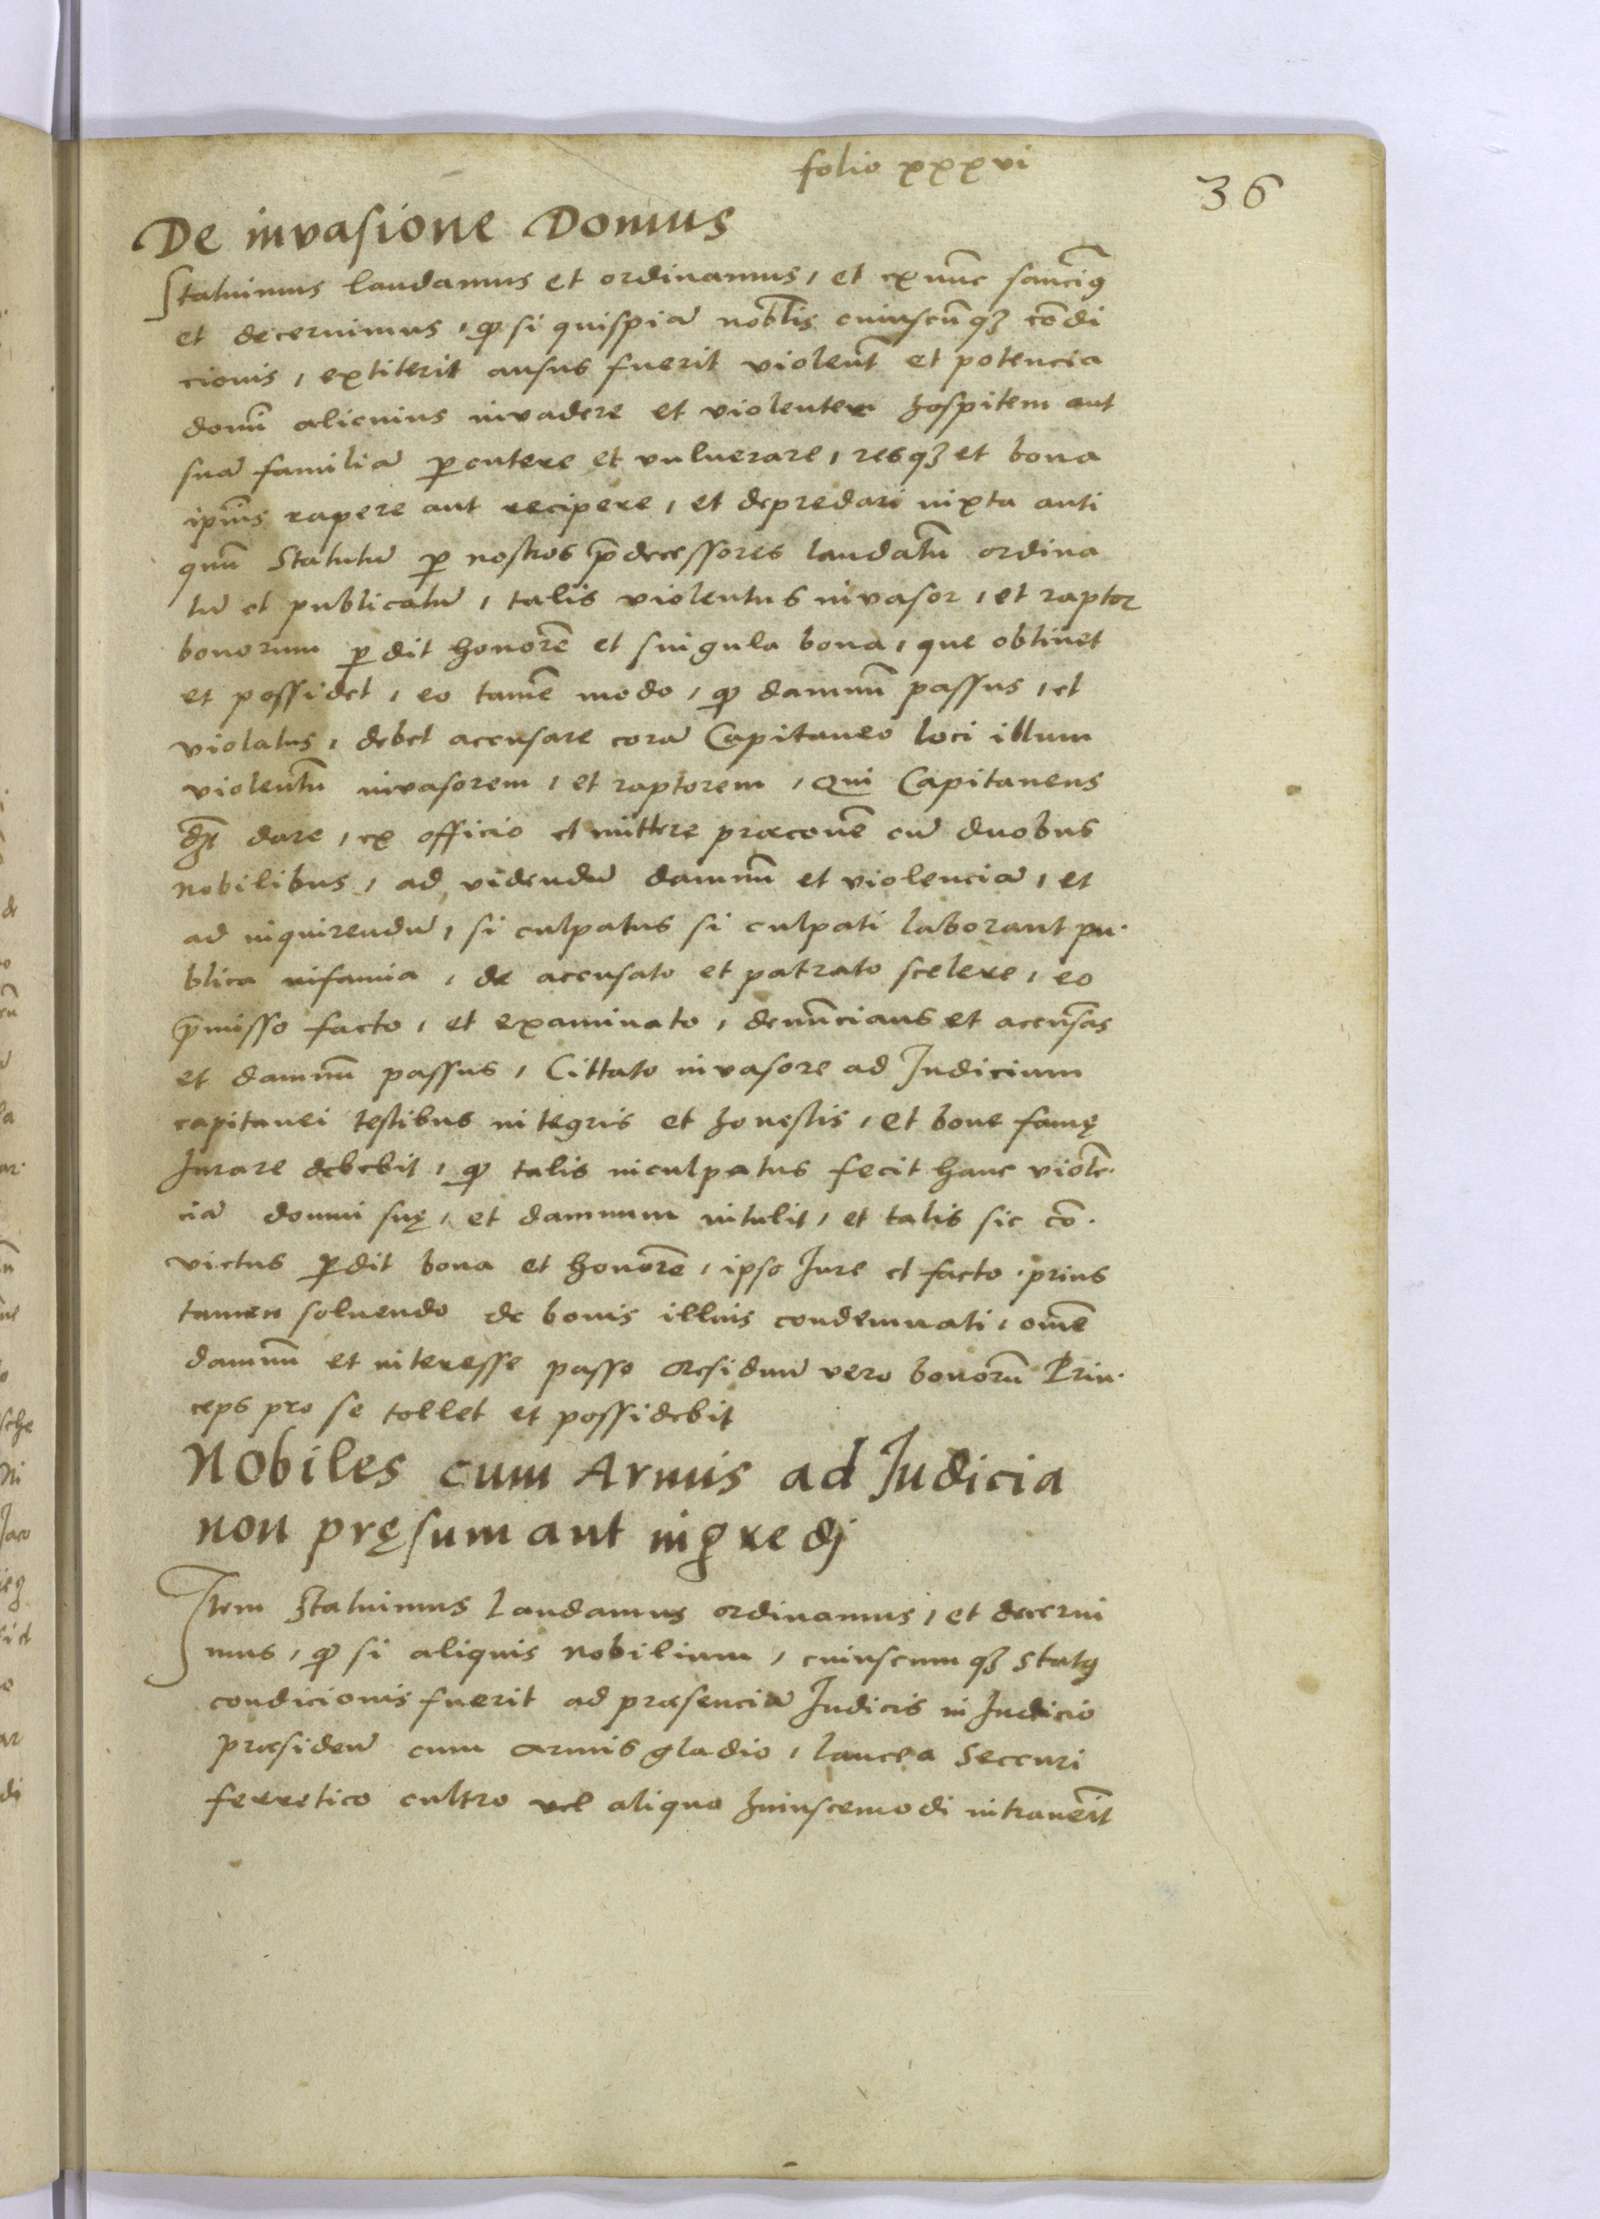 folio xxxvi
36
De invasione Domus
Statuimus laudamus et ordinamus, et ex nũc sanciꝰ
et decernimus, ꝙ si quispiã nobĩlis cuiuscũqꝫ cõdi
cionis, extiterit ausus fuerit violent̃ et potencia
domũ alicuius invadere et violenter hospitem aut
suã familiã ꝑcutere et vulnerare, resqꝫ et bona
ipĩus rapere aut recipere, et depredari iuxta anti
quũ Statutũ ꝑ nostros p̃decessores laudatũ ordina
tũ et publicatũ, talis violentus invasor, et raptor
bonorum ꝑdit honorẽ et singula bona, que obtinet
et possidet, eo tamẽ modo, ꝙ damnũ passus, et
violatus, debet accusare corã Capitaneo loci illum
violentũ invasorem, et raptorem, Qui Capitaneus
dꝫt dare, ex officio et mittere præconẽ cũ duobus
nobilibus, ad videndũ damnũ et violenciã, et
ad inquirendũ, si culpatus si culpati laborant pu.
blica infamia, de accusato et patrato scelere, eo
p̃misso facto, et examinato, denũcians et accusãs
et damnũ passus, Cittato invasore ad Judicium
capitanei testibus integris et honestis, et bone famę
Jurare debebit, ꝙ talis inculpatus fecit hanc violẽ.
ciã domui suę, et damnum intulit, et talis sic cõ.
victus ꝑdit bona et honorẽ, ipso Jure et facto. prius
tamen soluendo de bonis illius condemnati, omẽ
damnũ et interesse passo Residuũ vero bonorũ Prin.
ceps pro se tollet et possidebit
Nobiles cum Armis ad Judicia
non pręsumant ingredj
Item Statuimus laudamus ordinamus, et decerni
mus, ꝙ si aliquis nobilium, cuiuscumqꝫ statꝰ
condicionis fuerit ad præsenciã Judicis in Judicio
præsidenĩ cum armis gladio, lancea Seccuri
ferretico cultro vel aliquo huiuscemodi intrauerĩt